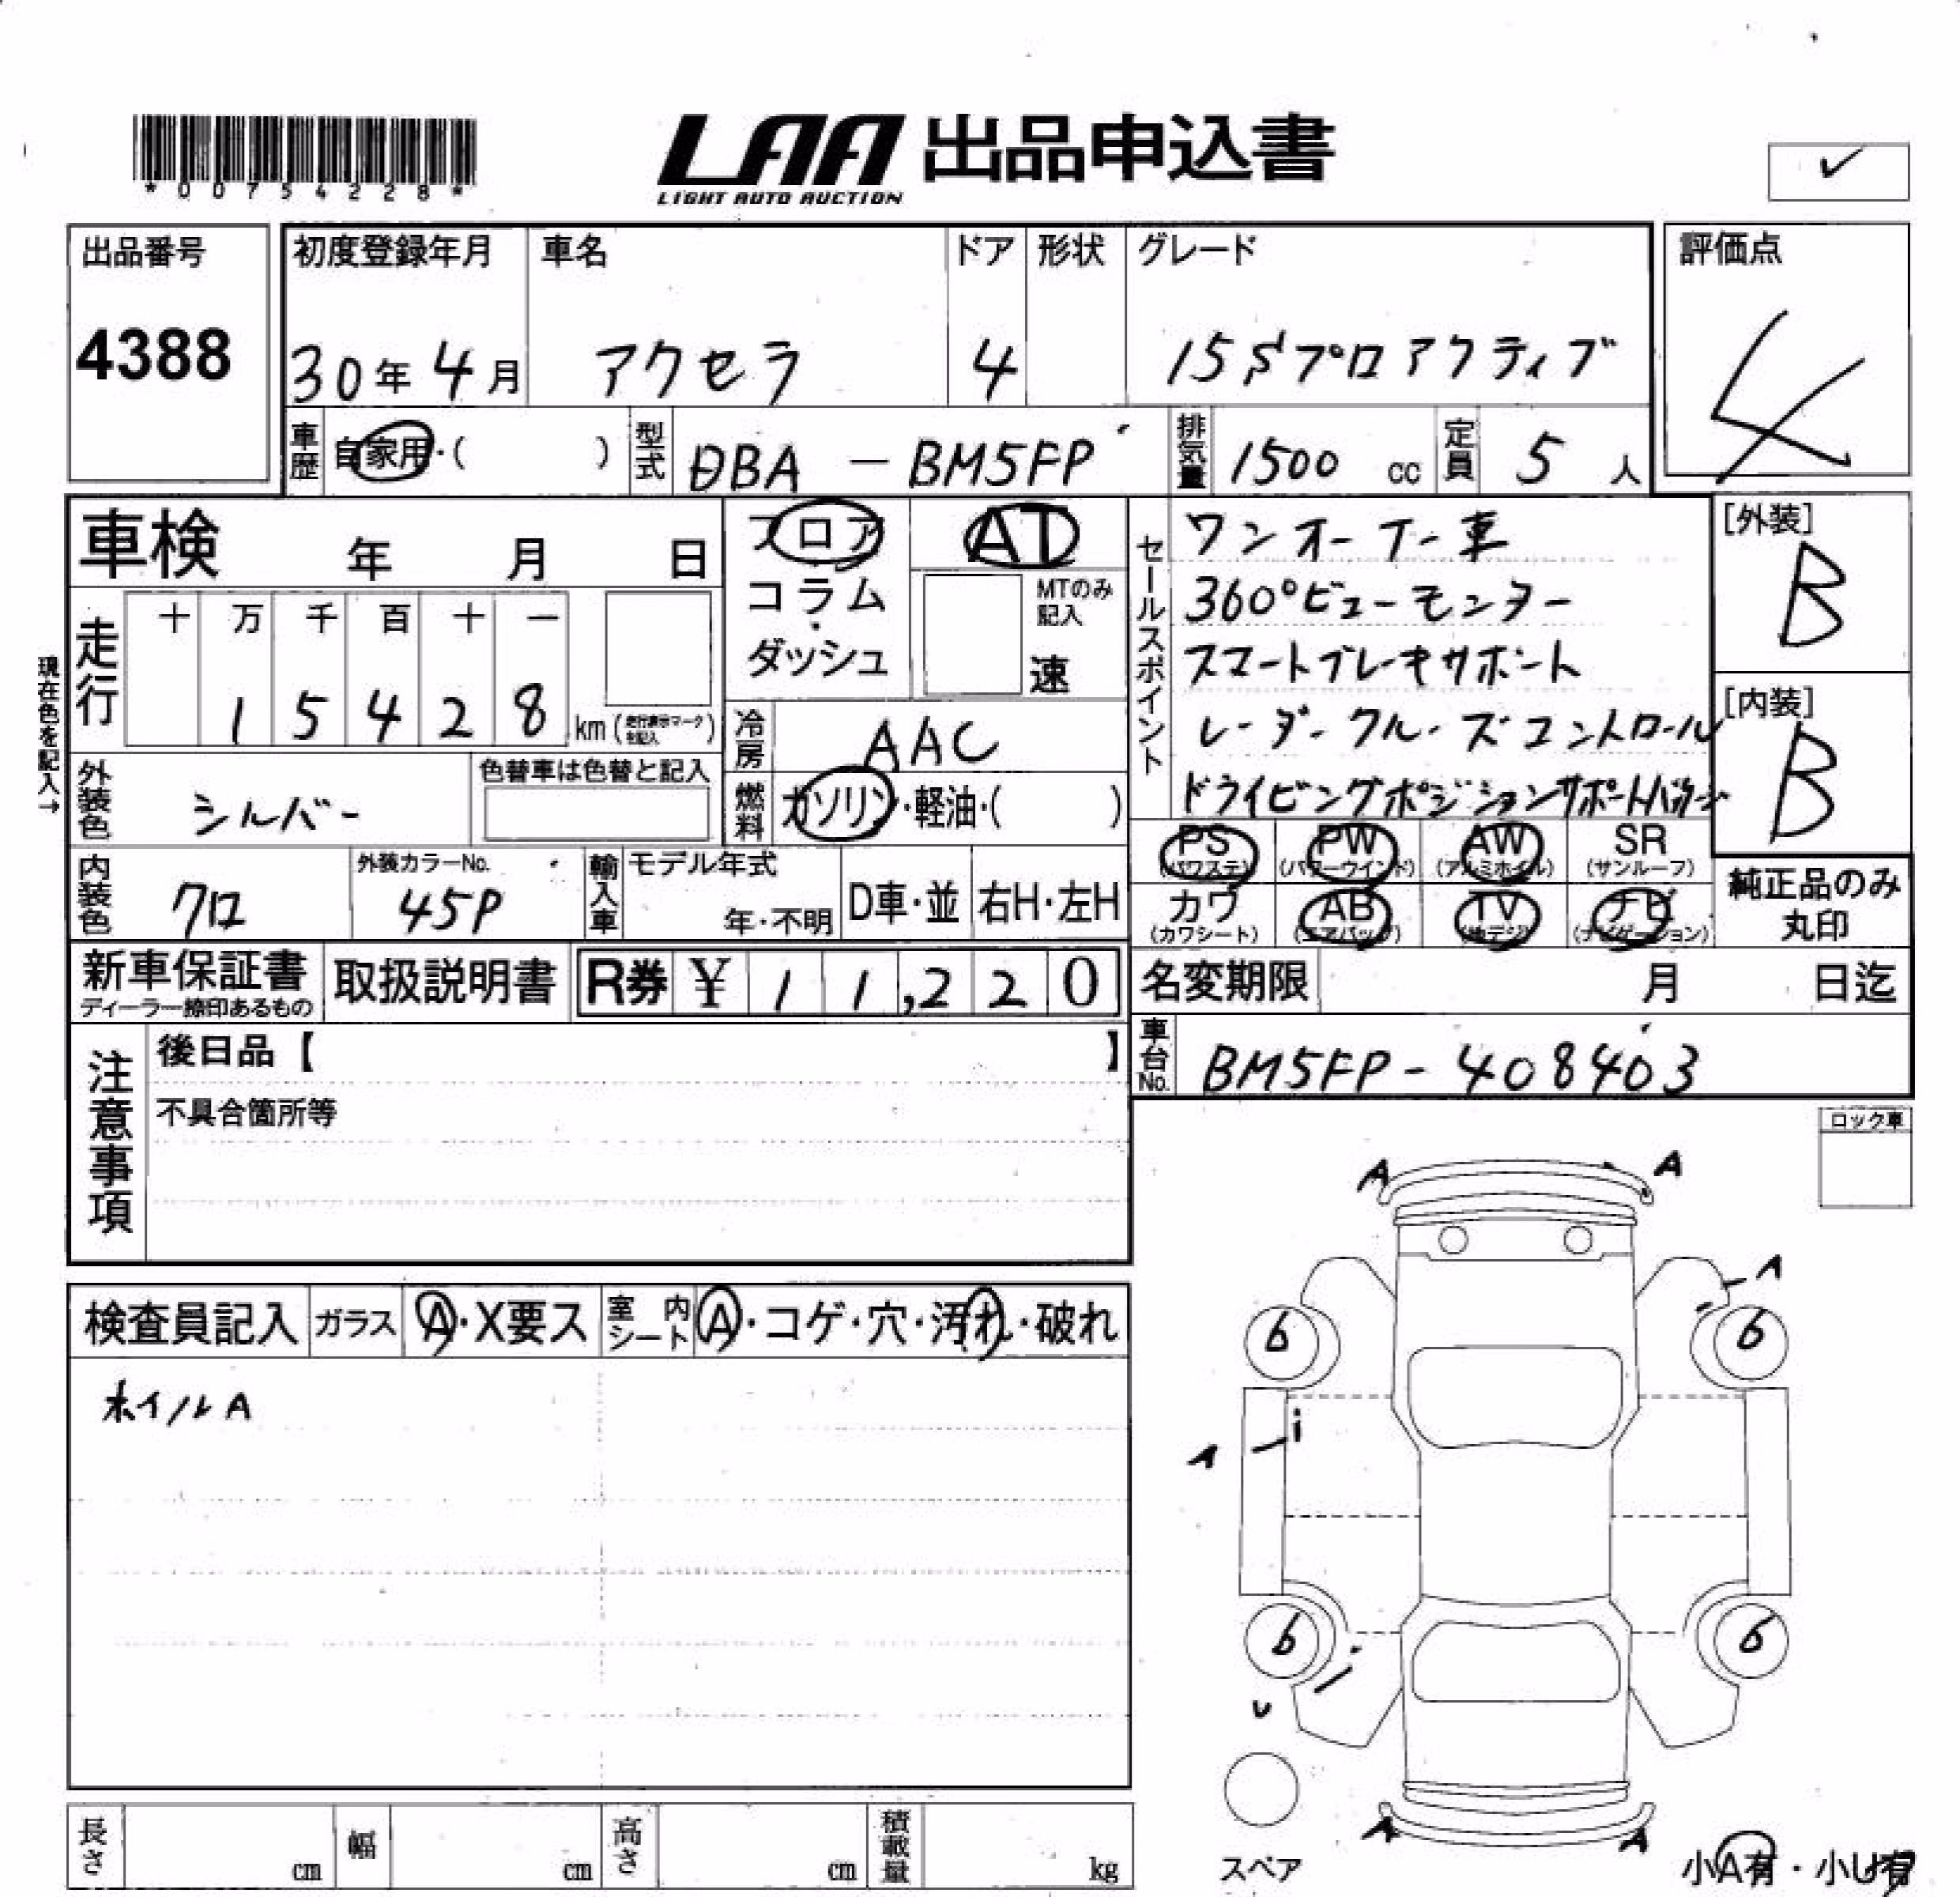 *00754228*
LAA 出品申込書
LIGHT AUTO AUCTION
✓
出品番号
4388
初度登録年月 車名 ドア 形状 グレード
30年 4月 アクセラ 4 15Sプロアクティブ
評価点
4
車歴 自家用・( ) 型式 DBA - BM5FP 排気量 1500 cc 定員 5 人
車検 年 月 日
フロア AT
コラム
ダッシュ
MTのみ記入
速
現在色を記入→
走行 十 万 千 百 十 一
1 5 4 2 8 km (走行表示マークを記入)
冷房 AAC
燃料 ガソリン・軽油・( )
セールスポイント
ワンオーナー車
360°ビューモニター
スマートブレーキサポート
レーダークルーズコントロール
ドライビングポジションサポートパッケージ
[外装]
B
[内装]
B
外装色 シルバー 色替車は色替と記入
内装色 クロ 外装カラーNo. 45P 輸入車 モデル年式 年・不明 D車・並 右H・左H
PS (パワステ) PW (パワーウインド) AW (アルミホイル) SR (サンルーフ)
カワ (カワシート) AB (エアバッグ) TV (地デジ) ナビ (ナビゲーション)
純正品のみ
丸印
新車保証書 取扱説明書 R券 ¥ 1 1,2 2 0
ディーラー捺印あるもの
名変期限 月 日迄
車台No. BM5FP-408403
注意事項
後日品【 】
不具合箇所等
ロック車
検査員記入 ガラス A・X要ス 室内シート A・コゲ・穴・汚れ・破れ
ホイルA
A A
A
6 6
A i
6 6
i
U
A A
スペア
小A有・小U有
長さ cm 幅 cm 高さ cm 積載量 kg